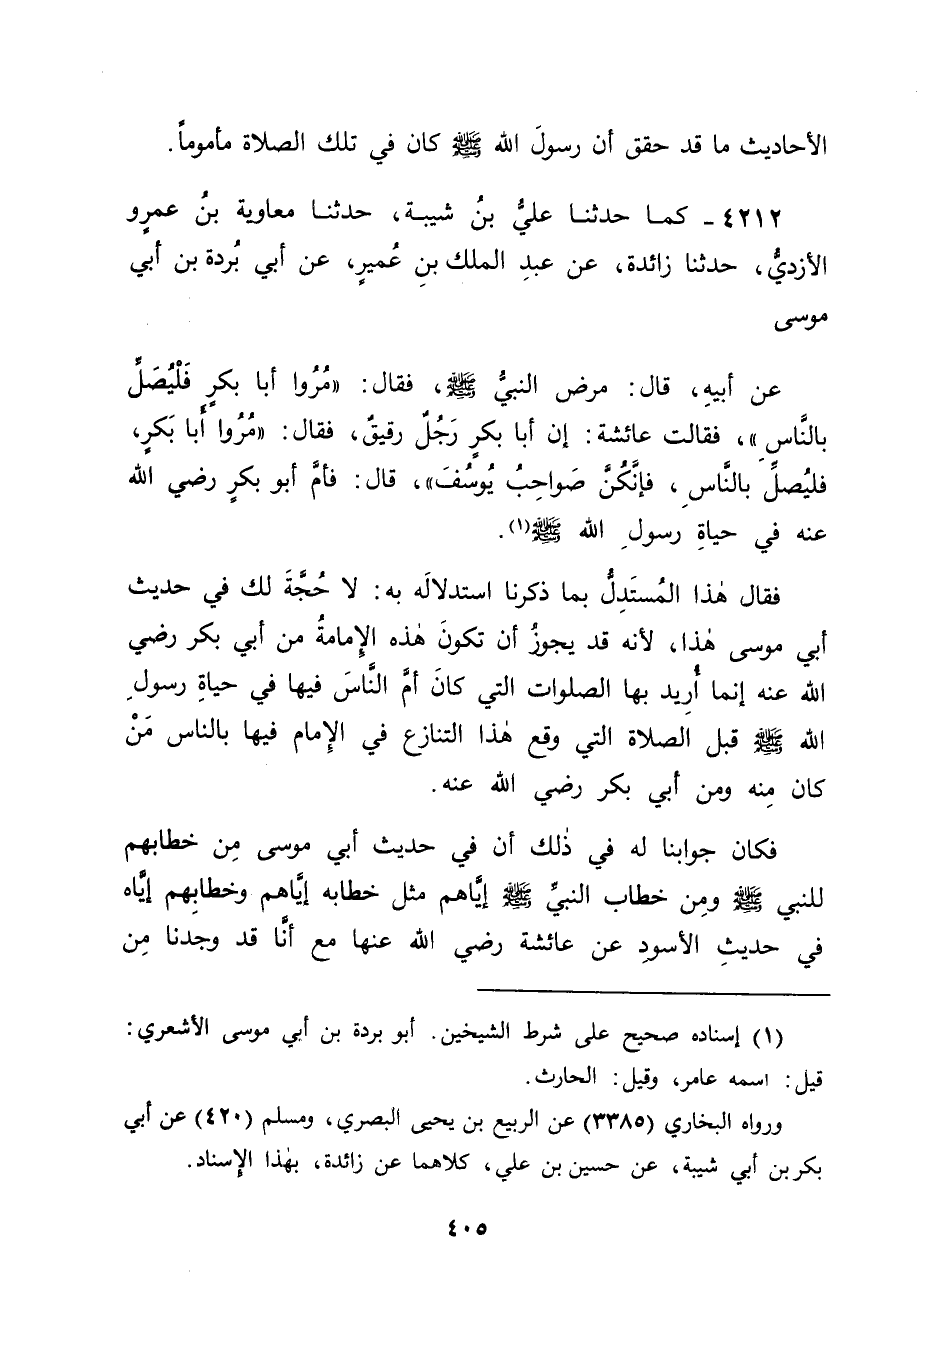 الأحاديث ما قد حقق أن رسولَ الله ﷺ كان في تلك الصلاة مأموماً.
٤٢١٢ ـ كما حدثنا عليُّ بنُ شيبة، حدثنا معاوية بنُ عمرٍو
الأزديُّ، حدثنا زائدة، عن عبدِ الملك بنِ عُميرٍ، عن أبي بُردة بن أبي
موسى
عن أبيهِ، قال: مرض النبيُّ ﷺ، فقال: «مُرُوا أبا بكرٍ فَلْيُصَلِّ
بالنَّاسِ»، فقالت عائشة: إن أبا بكرٍ رَجُلٌ رقيقٌ، فقال: «مُرُوا أَبا بَكرٍ،
فليُصلِّ بالنَّاسِ، فإنَّكُنَّ صَواحِبُ يُوسُفَ»، قال: فأمَّ أبو بكرٍ رضي الله
عنه في حياةِ رسولِ الله ﷺ(١).
فقال هٰذا المُستَدِلُّ بما ذكرنا استدلالَه به: لا حُجَّةَ لك في حديث
أبي موسى هٰذا، لأنه قد يجوزُ أن تكونَ هٰذه الإِمامةُ من أبي بكر رضي
الله عنه إنما أُرِيد بها الصلوات التي كانَ أمَّ النَّاسَ فيها في حياةِ رسولِ
الله ﷺ قبل الصلاة التي وقع هٰذا التنازع في الإِمام فيها بالناس مَنْ
كان مِنه ومن أبي بكر رضي الله عنه.
فكان جوابنا له في ذٰلك أن في حديث أبي موسى مِن خطابهم
للنبي ﷺ ومِن خطاب النبيِّ ﷺ إيَّاهم مثل خطابه إيَّاهم وخطابِهم إيَّاه
في حديثِ الأسودِ عن عائشة رضي الله عنها مع أنَّا قد وجدنا مِن
(١) إسناده صحيح على شرط الشيخين. أبو بردة بن أبي موسى الأشعري:
قيل: اسمه عامر، وقيل: الحارث.
ورواه البخاري (٣٣٨٥) عن الربيع بن يحيى البصري، ومسلم (٤٢٠) عن أبي
بكر بن أبي شيبة، عن حسين بن علي، كلاهما عن زائدة، بهٰذا الإِسناد.
٤٠٥